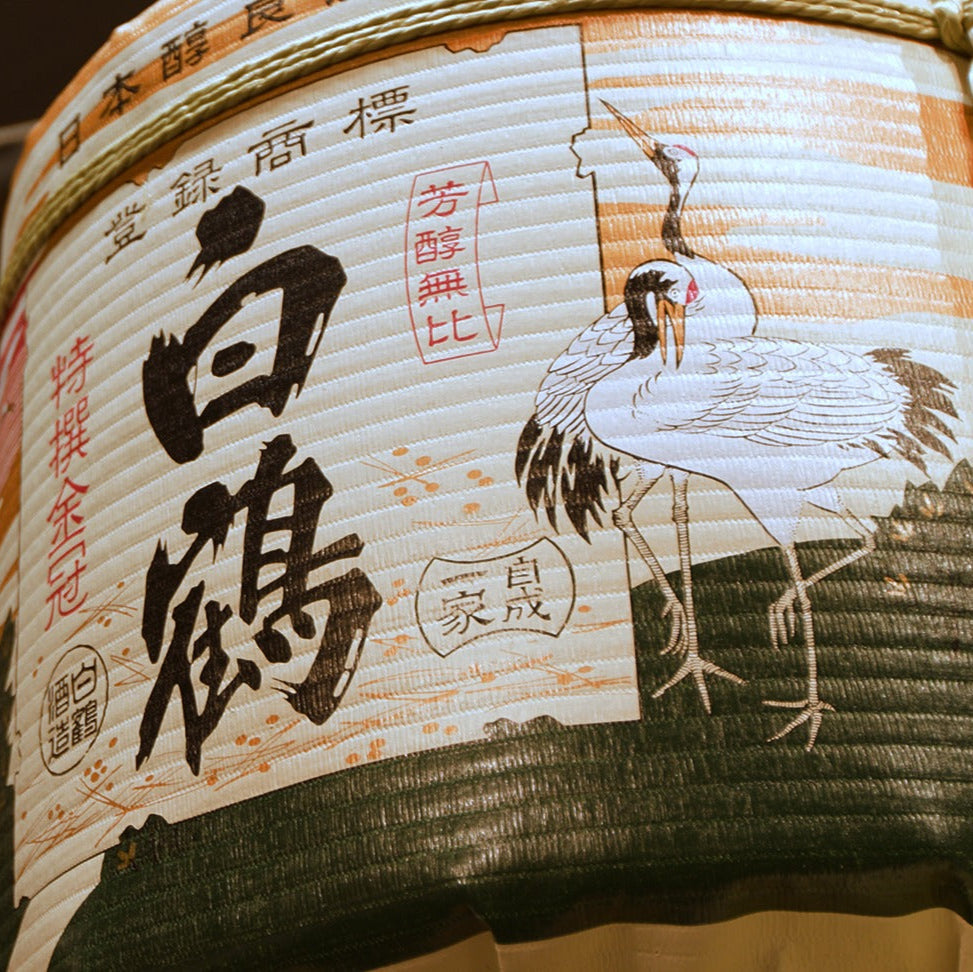 日本醇良
標商録登
芳醇無比
白鶴
自成一家
特撰金冠
白鶴酒造